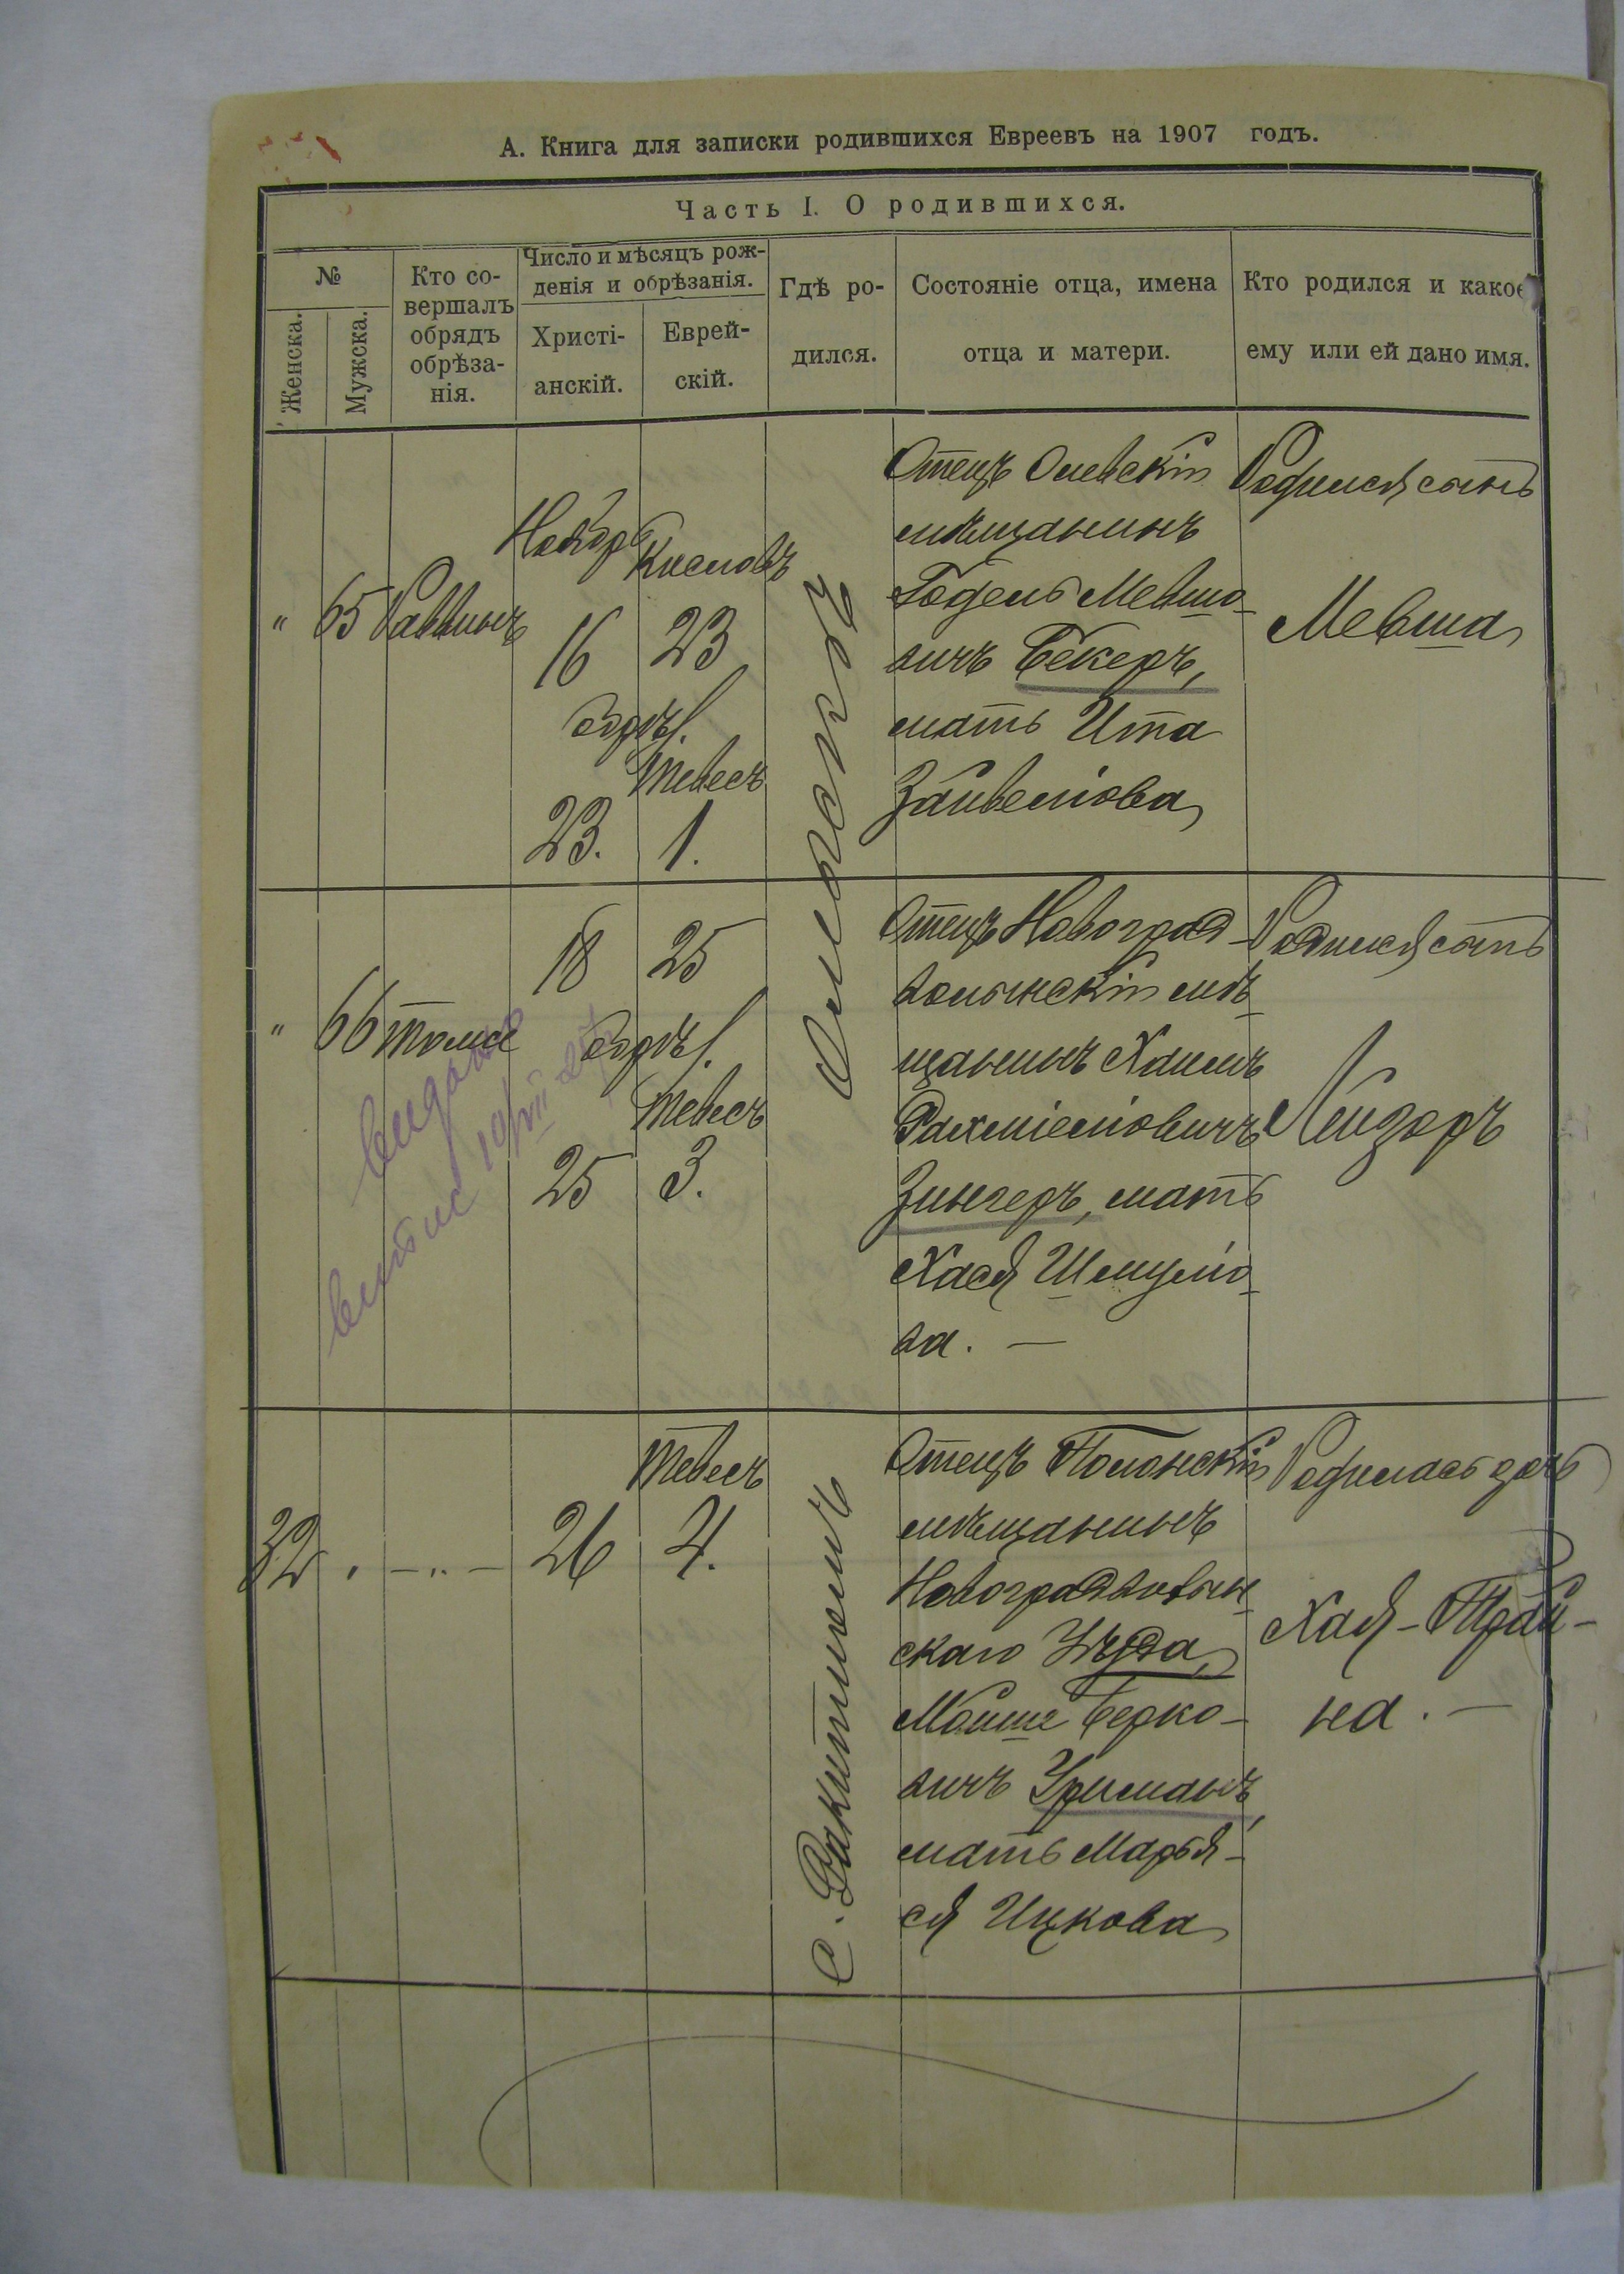 А. Книга для записки родившихся Евреевъ на 1907 годъ.
Часть I. О родившихся.
№
Женска.
Мужска.
Кто со-
вершалъ
обрядъ
обрѣза-
нія.
Число и мѣсяцъ рож-
денія и обрѣзанія.
Христі-
анскій.
Еврей-
скій.
Гдѣ ро-
дился.
Состояніе отца, имена
отца и матери.
Кто родился и какое
ему или ей дано имя.
" 65 Раввинъ
Ноябрь Кислевъ
16 23
обрѣз.
Тевесъ
23. 1.
Отецъ Олевскій
мѣщанинъ
Годель Мевшо-
вичъ Бекеръ,
мать Ита
Зайвелiова
Родился сынъ
Мевша
" 66 тоже
18 25
обрѣз.
Тевесъ
25 3.
Отецъ Новоград-
волынскій мѣ-
щанинъ Хаимъ
Рахміеліовичъ
Зингеръ, мать
Хася Шмуліо-
ва. —
Родился сынъ
Лейзоръ
видано
32 " — " —
Тевесъ
26 4.
с. Ракитномъ
Отецъ Полонскій
мѣщанинъ
Новоградволын-
скаго Уѣзда,
Мойше Берко-
вичъ Уриманъ,
мать Марья-
ся Ицкова
Родилась дочь
Хая-Трай-
на. —